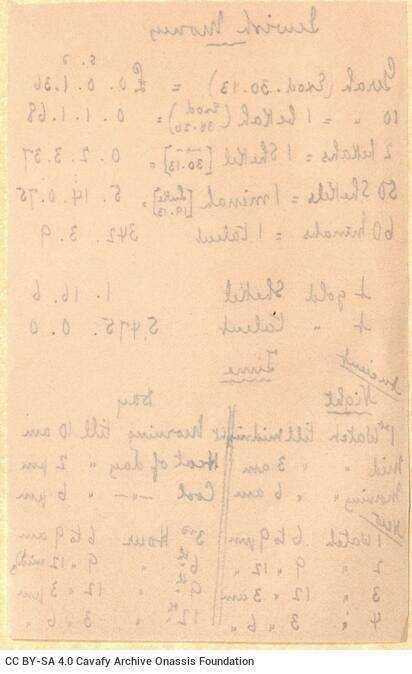 Jewish Money
s. d.
Gerah (Exod. 30.13) = £0. 0. 1.36
10 " = 1 bekah (Exod 38.26) = 0. 1. 1.68
2 bekahs = 1 Shekel [30.13] = 0. 2. 3.37
50 Shekels = 1 minah [Luke 19.13] = 5. 14. 0.75
60 minahs = 1 talent 342. 3. 9
A gold Shekel 1. 16. 6
A " talent 5,475. 0. 0
Ancient Time
Night Day
1st Watch till midnight Morning till 10 am
Mid " " 3 am Heat of day " 2 pm
Morning " " 6 am Cool " " 6 pm
New
1 Watch 6 to 9 pm 3rd Hour 6 to 9 am
2 " 9 " 12 " 6th " 9 " 12 mid
3 " 12 " 3 am 9th " 12 " 3 pm
4 " 3 " 6 " 12th " 3 " 6 "
CC BY-SA 4.0 Cavafy Archive Onassis Foundation